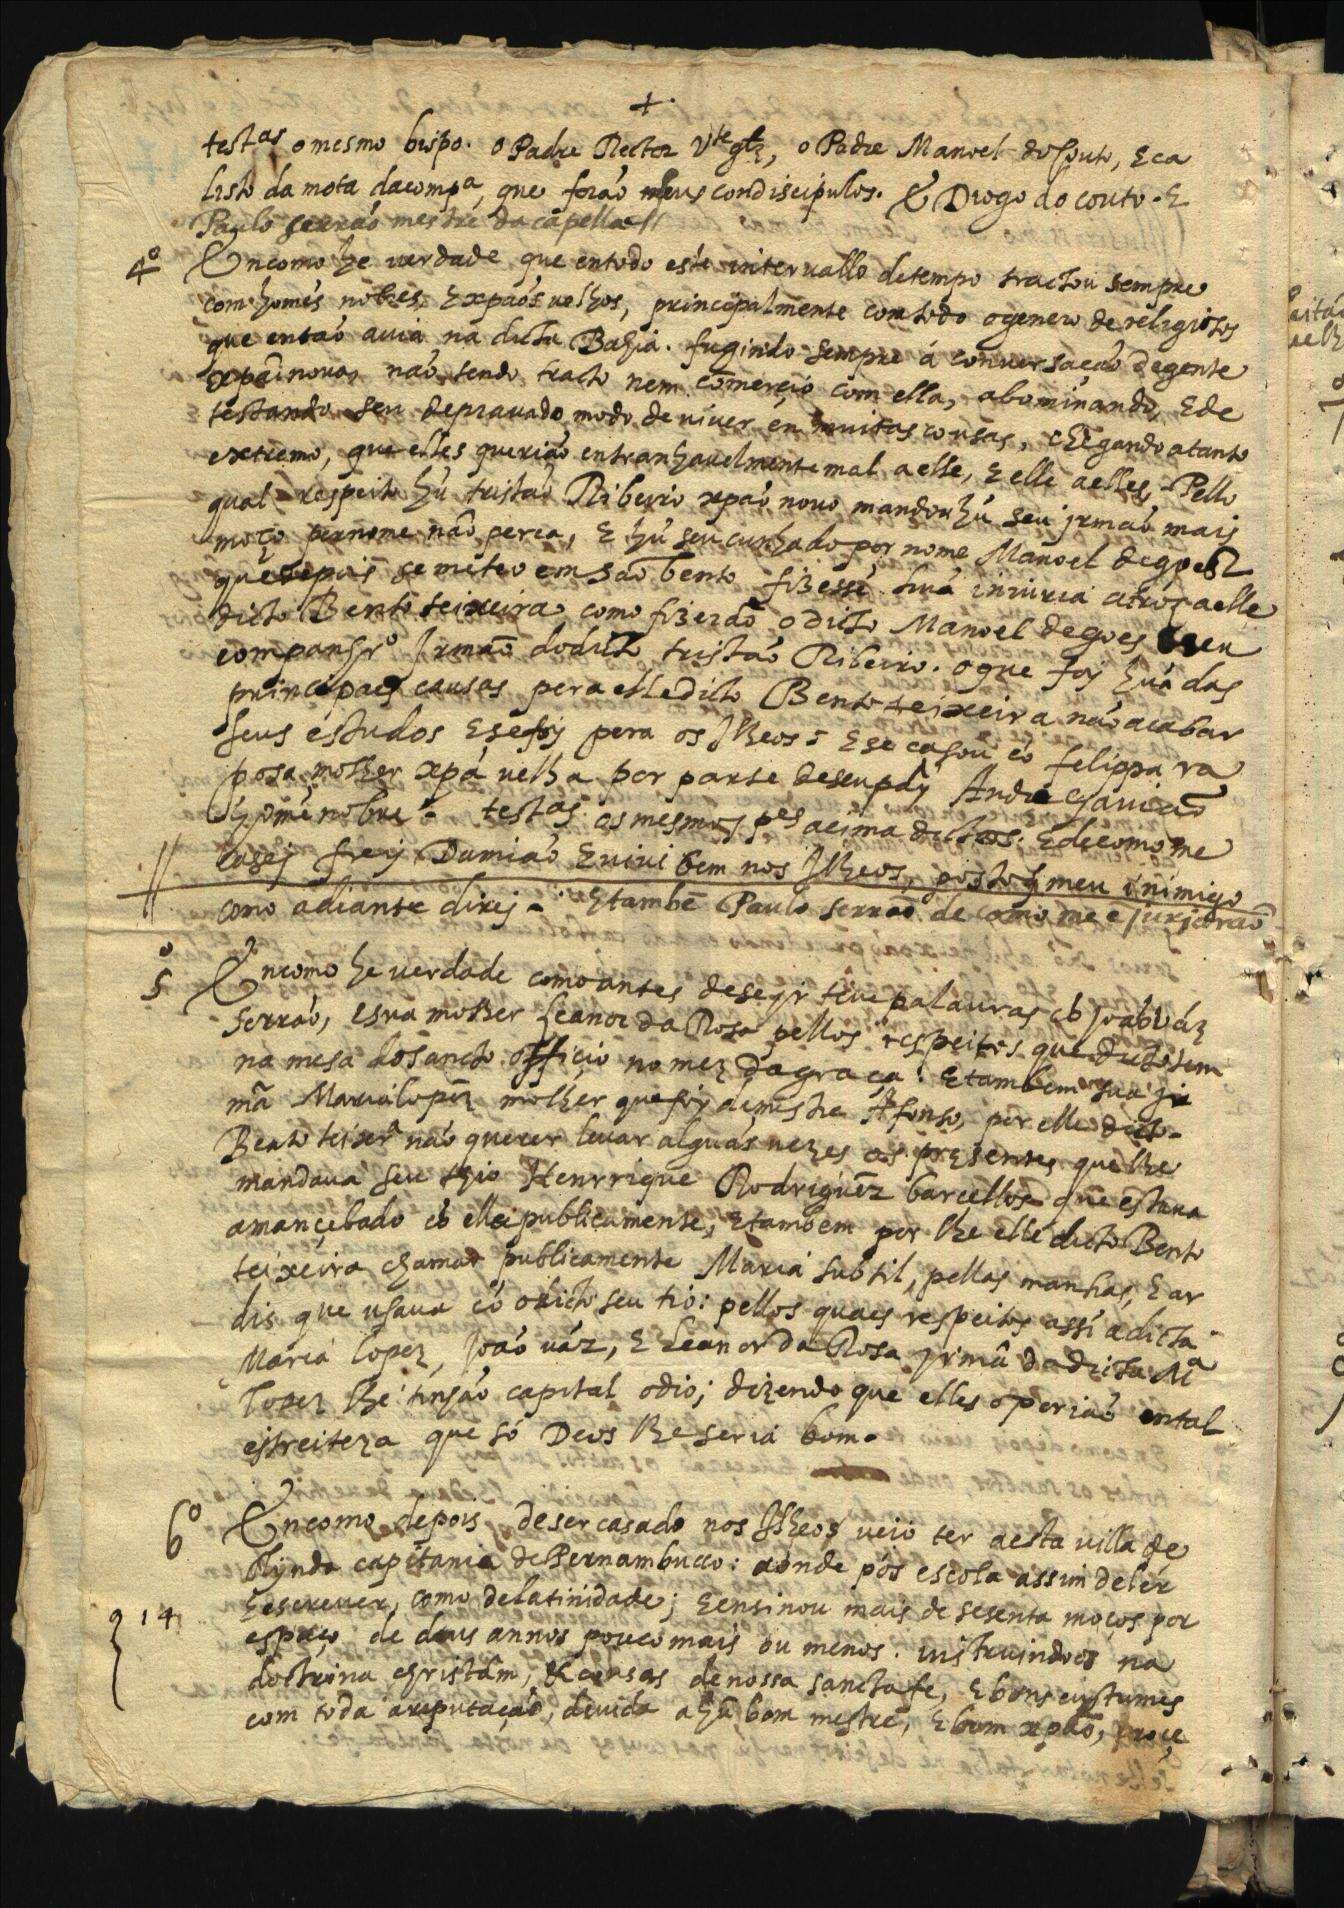 +
testas o mesmo bispo. o Padre Rector Vte glz, o Padre Manoel do souto, E ca
listo da mota da compa, que forão meus condiscipulos. & Diogo do couto. E
Paulo serrão mestre da capella //
4o Encomo he verdade que entodo este intervallo detempo tractou sempre
com homẽs nobres, E xpãos velhos, principalmente com todo o genero de religiosos
que entaõ avia na dicta Bahia. fugindo sempre á conversacaõ de gente
xpaã nova, naõ tendo tracto nem comerçio com ella, abominando, E de
testando seu depravado modo de viver en muitas cousas, chegando a tanto
extremo, que elles queriaõ entranhavelmente mal a elle, E elle a elles. Pello
qual respeito hũ tristaõ Ribeiro xpaõ novo mandou hũ seu jrmaõ mais
moço per nome naõ perca, E hũ seu cunhado por nome Manoel de goes
que depois se meteo em saõ bento fizessẽ hũa iniuria atroz a elle
dicto Bento teixeira, como fizeraõ o dicto Manoel de goes E seu
companhro Jrmaõ do dicto tristaõ Ribeiro. o que foy hũa das
principaes causas pera elle dicto Bento teixeira naõ acabar
seus estudos E se foy pera os Jlheos: E se casou cõ felippa ra
posa molher xpã velha por parte de seu pay Andre Gaviaõ
homẽ nobre. testas os mesmos pes acima dictos. E de como me
casej frey Damiaõ E vivi bem nos Jlheos, posto q meu inimigo
como adiante direj. E tambẽ Paulo serraõ de como me
5o Encomo he verdade como antes de se yr teve palavras cõ Joaõ váz
serraõ, E sua molher Leanor da Rosa pellos respeitos que dicto tem
na mesa do sancto officio no mez da graça. E tambem sua jr
mã Maria lopez molher que foy de mestre Afonso, por elle dicto
Bento teixera naõ querer levar alguãs vezes os presentes que lhe
mandava seu thio Henrrique Rodriguez barcellos que estava
amançebado cõ ella publicamente, E tambem por lhe elle dicto Bento
teixeira chamar publicamente Maria subtil, pellas manhas, E ar
dis que usava cõ o dicto seu tio: pellos quaes respeitos assi a dicta
Maria lopez, Joaõ váz, E Leanor da Rosa jrmã da dicta Ma
lopez lhe tinhaõ capital odio; dizendo que elles o poriaõ em tal
estreiteza que só Deos lhe seria bom.
6o Encomo depois de ser casado nos Jlheos veio ter a esta villa de
Olynda capitania de Pernambuco: aonde pós escola assim de lér
E escrever, como de latinidade; E ensinou mais de sesenta moços por
14 espaço de dous annos pouco mais ou menos. instruindoos na
doctrina christam, & cousas de nossa sancta fe, E bons custumes
com toda a reputaçaõ, devida a hũ bom mestre, E bom xpaõ, proçe